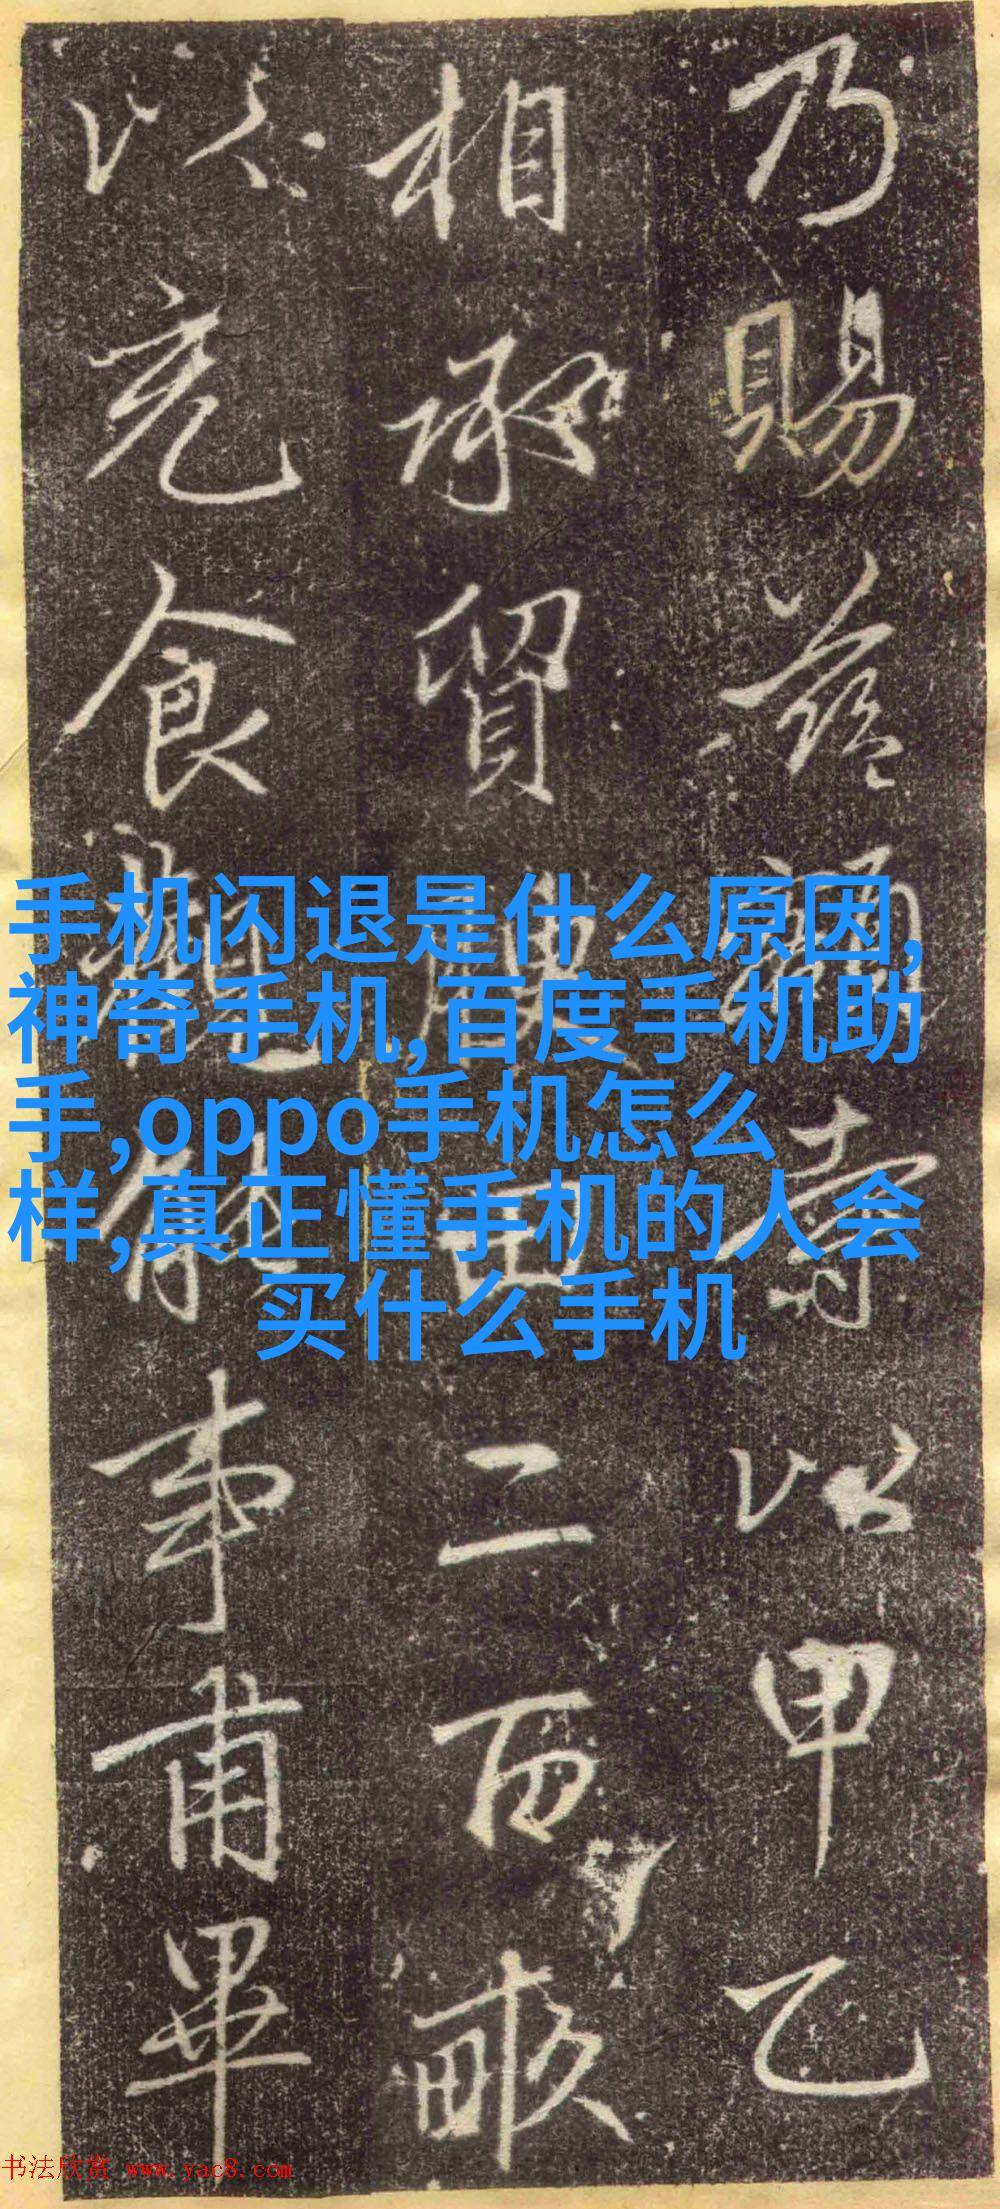 乃賜益額寺以甲乙
相承貿腴田二百畝
以充食觀龍事甫畢
手机闪退是什么原因,
神奇手机,百度手机助
手,oppo手机怎么
样,真正懂手机的人会
买什么手机
书法欣赏 www.yac8.com